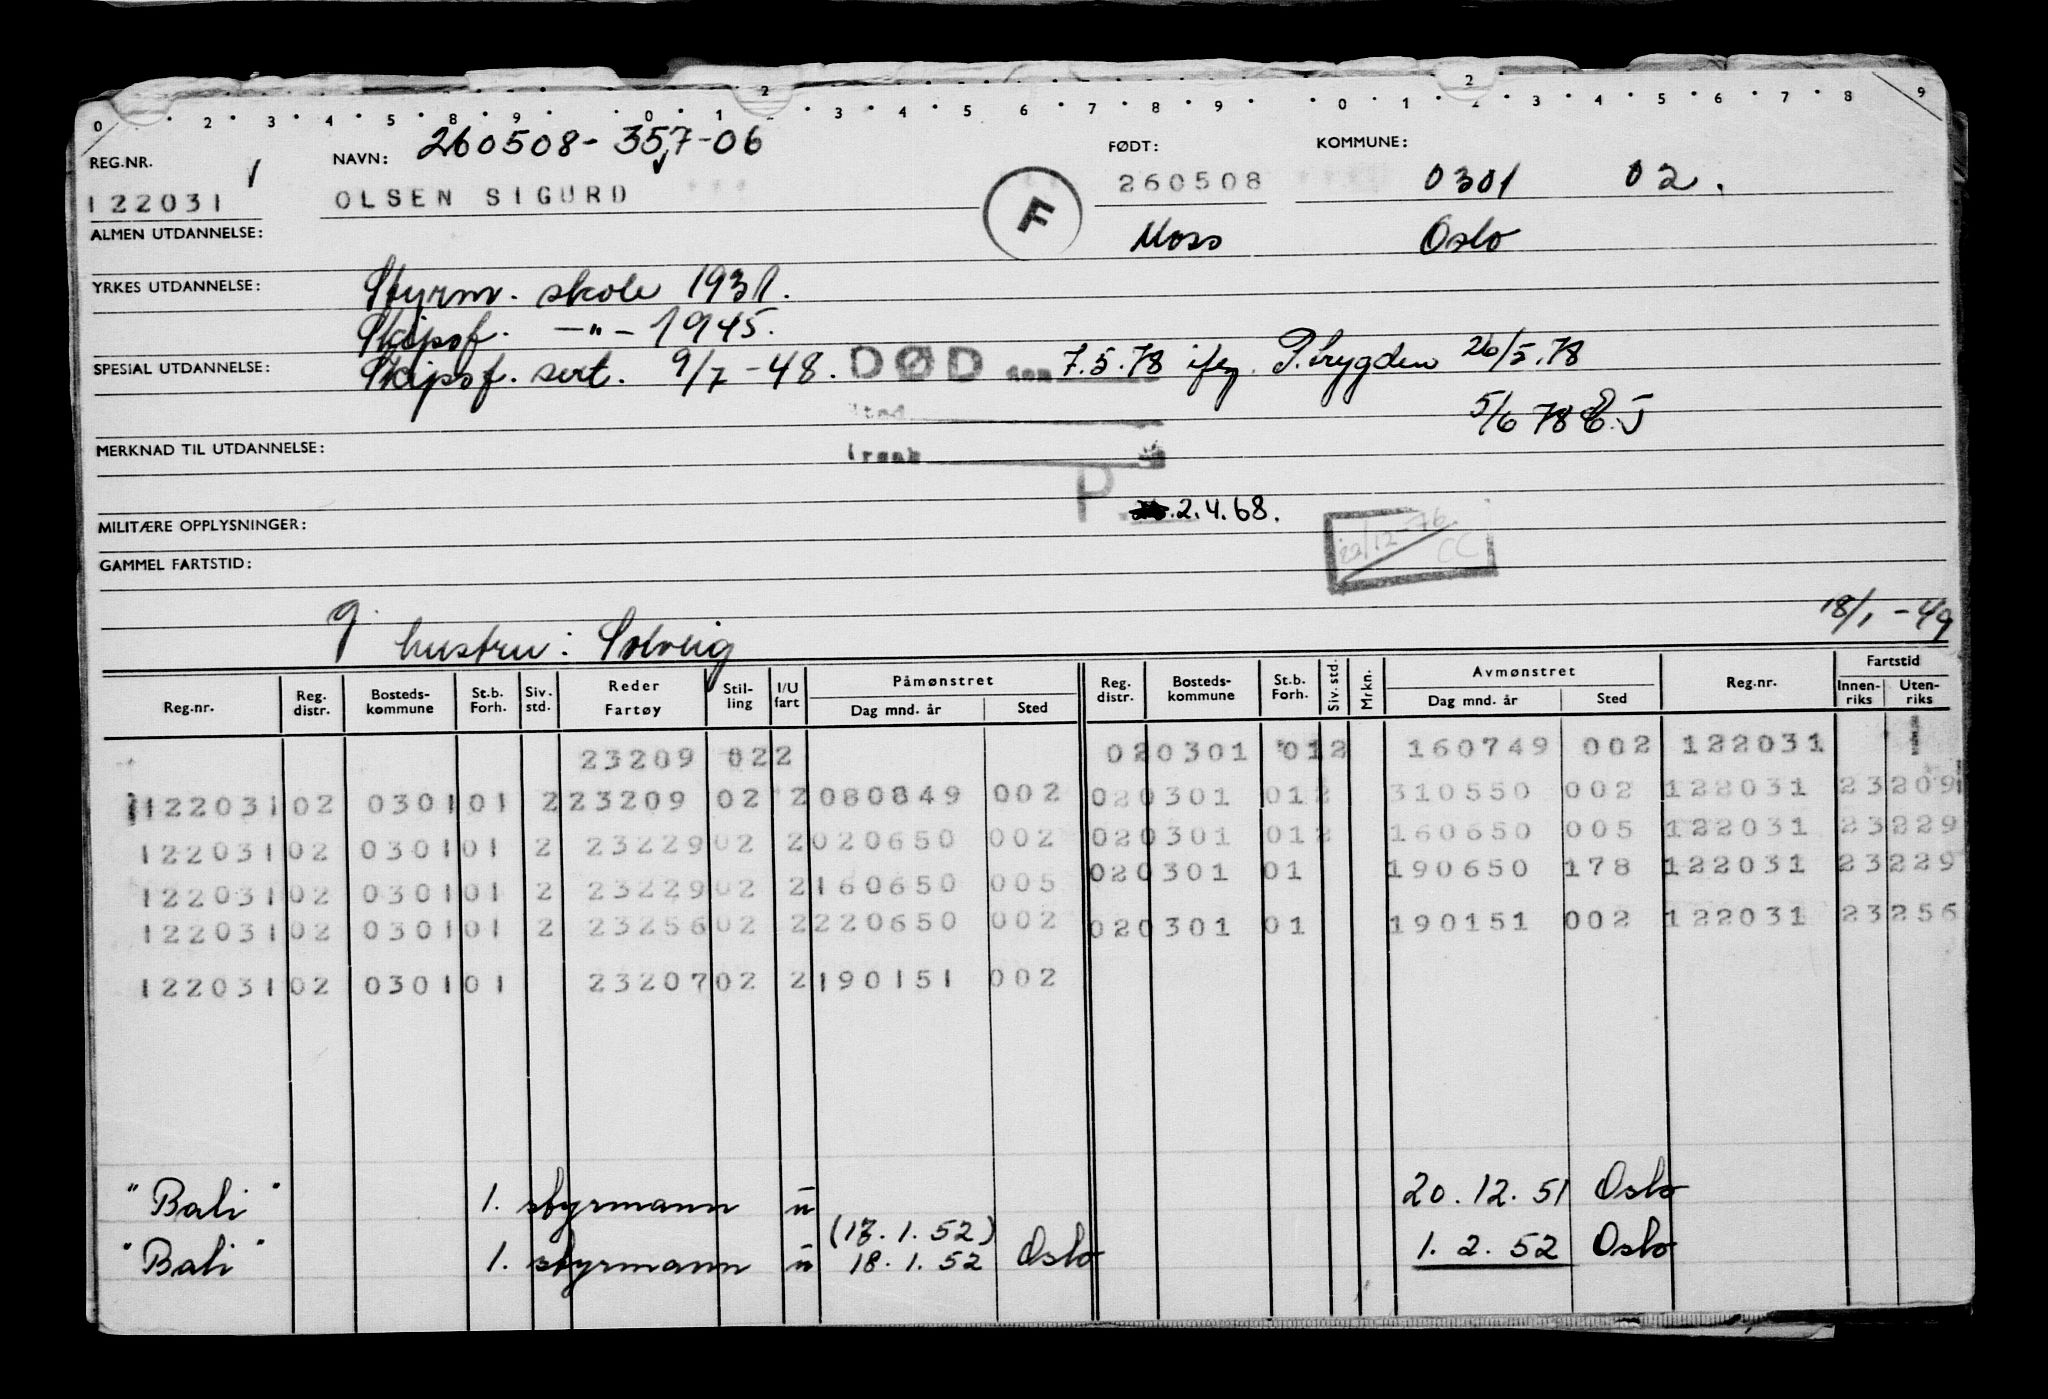 0 2 3 4 5 8 9 0 1 2 3 4 5 6 7 8 9 0 1 2 3 4 5 6 7 8 9
REG.NR. NAVN: 260508-357-06 FØDT: KOMMUNE:
122031 OLSEN SIGURD F 260508 0301 02.
ALMEN UTDANNELSE: Moss Oslo
YRKES UTDANNELSE: Styrm. skole 1931.
Skipsf. —"— 1945.
SPESIAL UTDANNELSE: Skipsf. sert. 9/7-48. DØD den 7.5.78 iføg. P.trygden 26/5.78
Sted 5/6 78 E.J
MERKNAD TIL UTDANNELSE: Årsak
P. 2.4.68.
MILITÆRE OPPLYSNINGER: 22/12-76 CC
GAMMEL FARTSTID:
g. hustru: Solveig 18/1-49
Reg.nr. Reg. distr. Bosteds- kommune St.b. Forh. Siv. std. Reder Fartøy Stil- ling I/U fart Påmønstret Dag mnd. år Sted Reg. distr. Bosteds- kommune St.b. Forh. Siv. std. Mrkn. Avmønstret Dag mnd. år Sted Reg.nr. Fartstid Innen- riks Uten- riks
23209 02 2 02 0301 01 2 160749 002 122031
122031 02 0301 01 2 23209 02 2 080849 002 02 0301 01 2 310550 002 122031 23209
122031 02 0301 01 2 23229 02 2 020650 002 02 0301 01 2 160650 005 122031 23229
122031 02 0301 01 2 23229 02 2 160650 005 02 0301 01 190650 178 122031 23229
122031 02 0301 01 2 23256 02 2 220650 002 02 0301 01 190151 002 122031 23256
122031 02 0301 01 23207 02 2 190151 002
"Bali" 1. styrmann u 20.12.51 Oslo
(17.1.52)
"Bali" 1. styrmann u 18.1.52 Oslo 1.2.52 Oslo